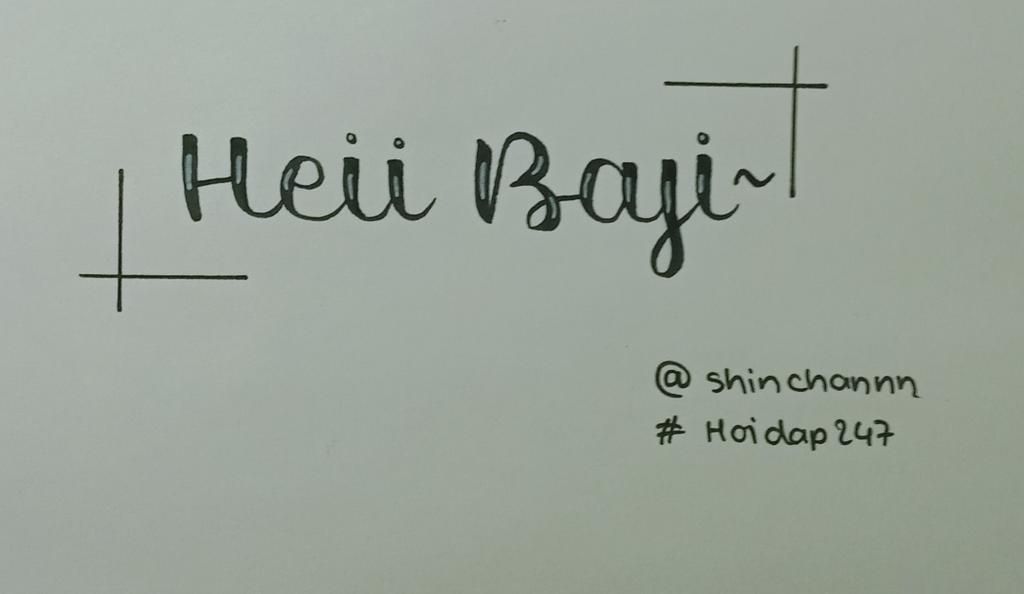 Heii Baji~
@ shinchannn
# Hoidap247